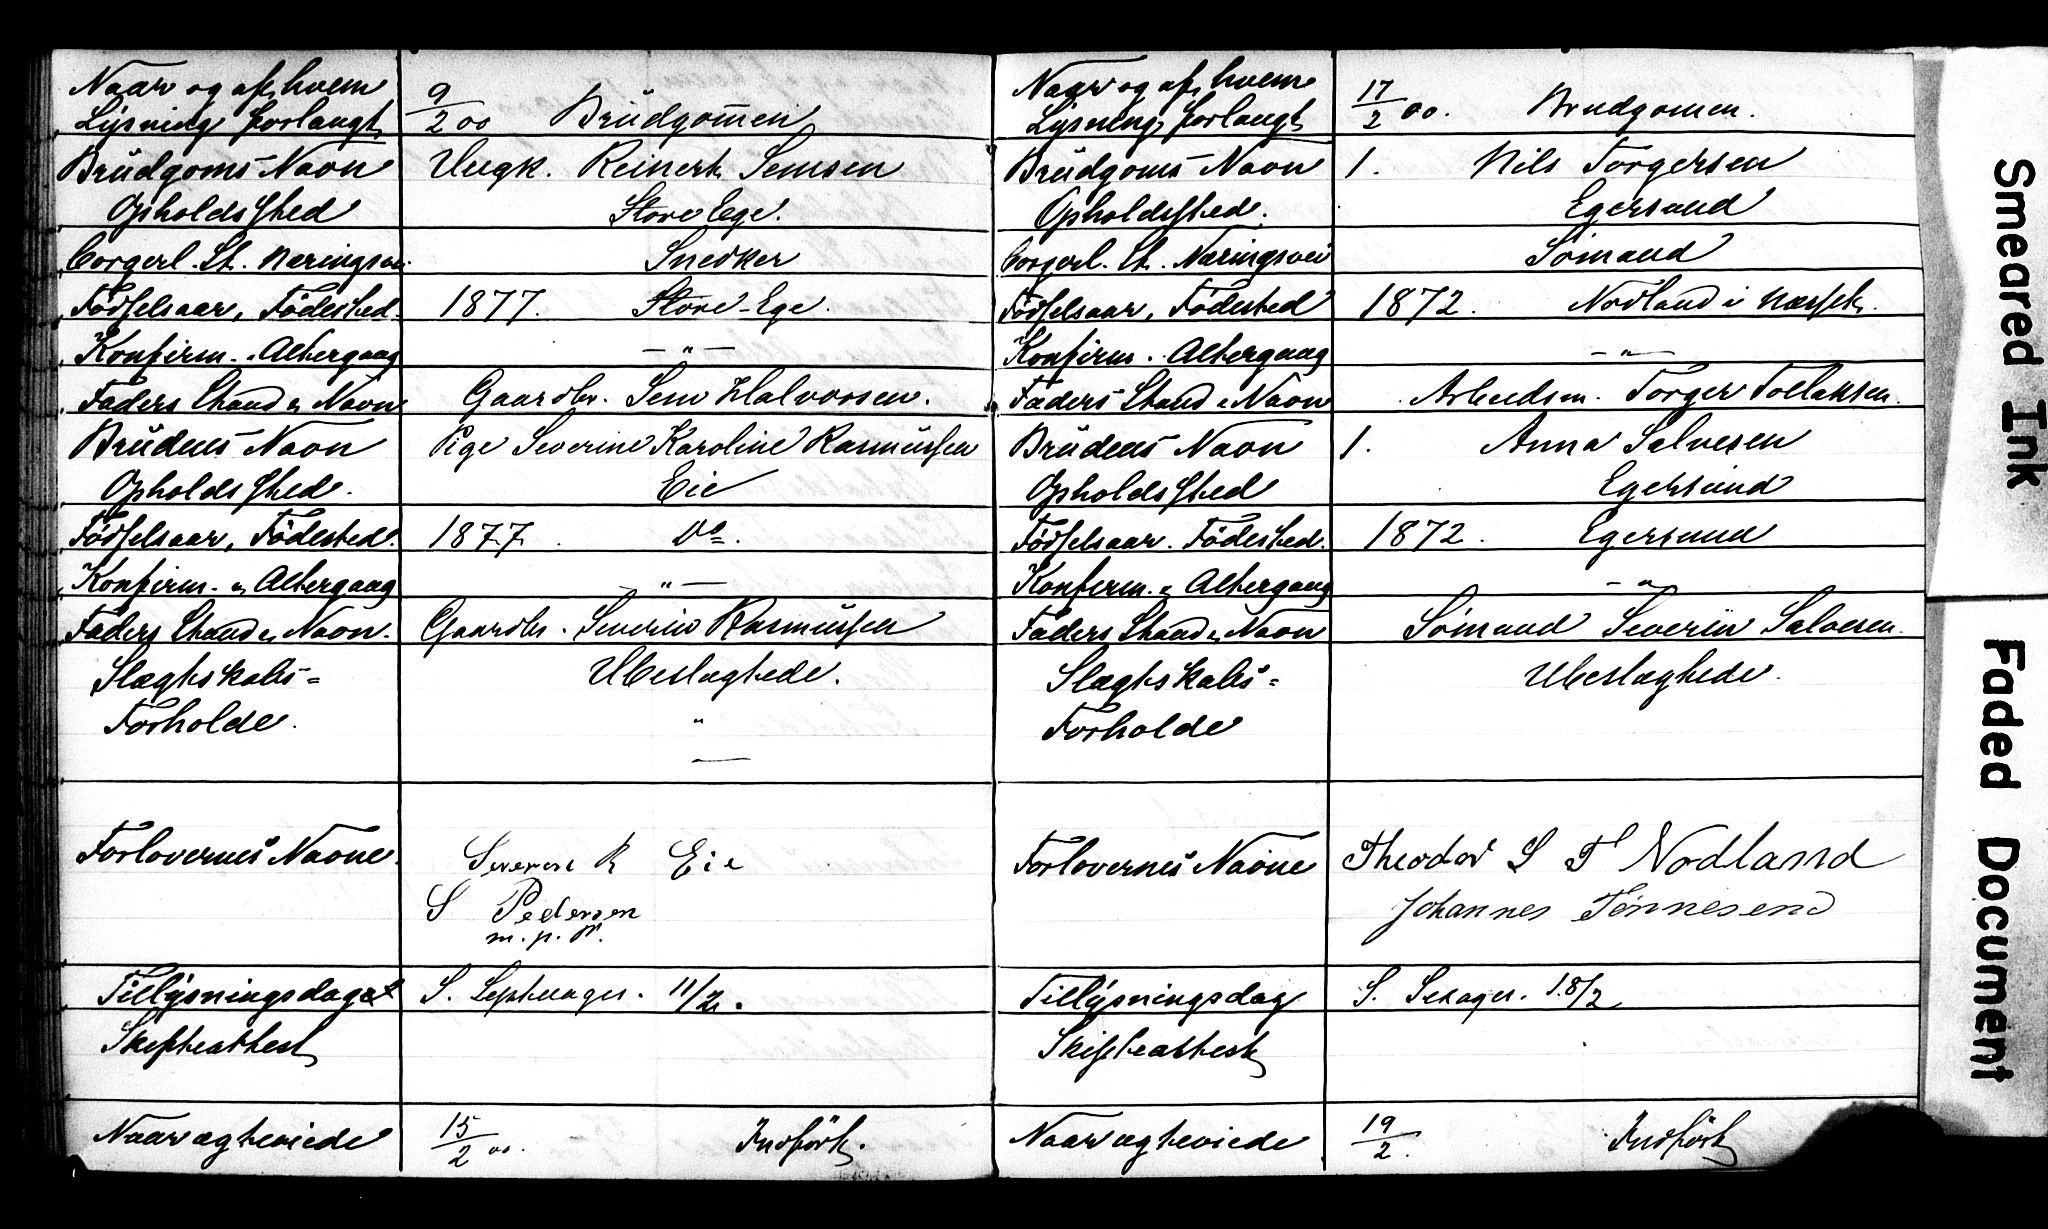 Naar og af hvem
Lysning forlangt 9/2 00 Brudgomen
Brudgoms Navn Ungk. Reinert Semsen
Opholdssted Store Ege.
Borgerl. St. Næringsvei Snedker
Fødselsaar, Fødested 1877. Store-Ege.
Konfirm. Altergang — " —
Faders Stand & Navn Gaardbr. Sem Halvorsen.
Brudens Navn Pige Severine Karoline Rasmussen
Opholdssted. Eie
Fødselsaar, Fødested. 1877. Do.
Konfirm. & Altergang — " —
Faders Stand & Navn. Gaardbr. Severin Rasmussen
Slægtskabs= Ubeslægtede.
Forholde. "
—
Forlovernes Navne. Severin R Eie
S Pedersen
m. p. P.
Tillysningsdage S. Septuages. 11/2.
Skifteattest
Naar ægteviede 15/2 00. Indført.
Naar og af hvem
Lysning forlangt 17/2 00. Brudgomen.
Brudgoms Navn 1. Nils Torgersen
Opholdssted. Egersund
Borgerl. St. Næringsvei Sømand
Fødselsaar, Fødested 1872. Nodland i
Konfirm. Altergang — " —
Faders Stand & Navn Arbeidsm. Torger Tollaksen.
Brudens Navn 1. Anna Salvesen
Opholdssted Egersund
Fødselsaar. Fødested. 1872. Egersund
Konfirm. & Altergang — " —
Faders Stand & Navn Sømand Severin Salvesen.
Slægtskabs= Ubeslægtede.
Forholde
Forlovernes Navne Theodor S T Nodland
Johannes Tønnesen
Tillysningsdag S. Sexages. 18/2
Skifteattest
Naar ægteviede 19/2. Indført
Smeared Ink
Faded Document